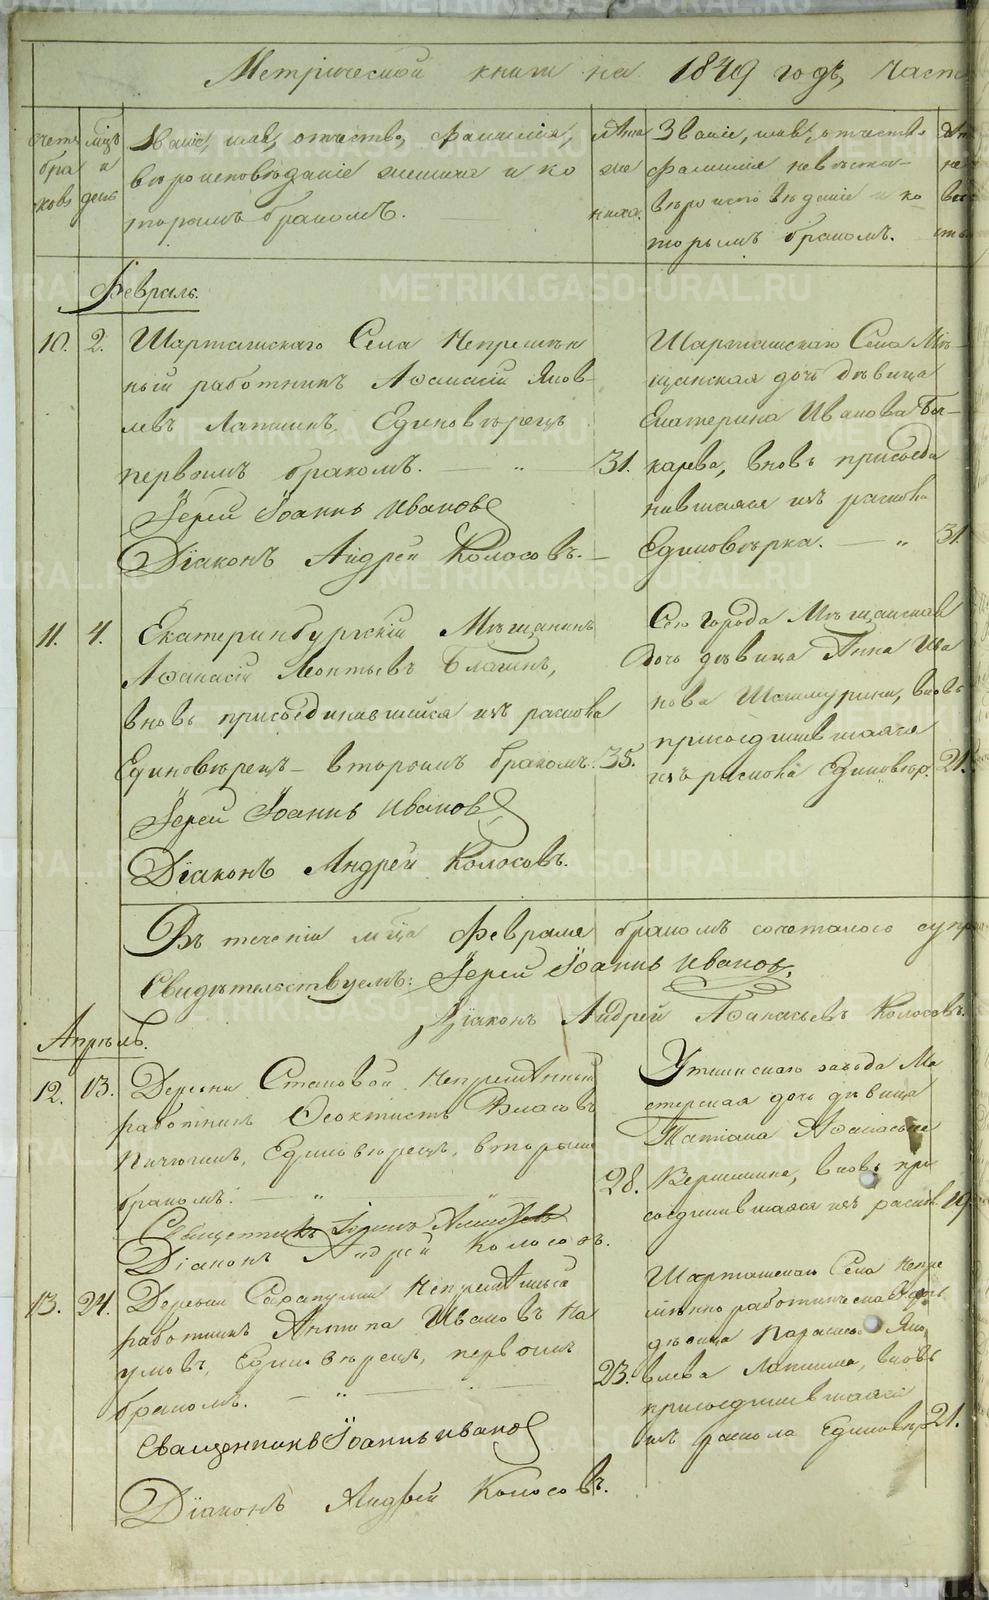 Метрической книги на 1849 годъ, часть
счетъ браковъ
мцъ и день
Званіе, имя, отчество, фамилія,
вѣроисповѣданіе жениха и ко
торымъ бракомъ.
лѣта жениха.
Званіе, имя, отчество
фамилія невѣсты
вѣроисповѣданіе и ко
торымъ бракомъ.
Февраль.
10. 2. Шарташскаго Села Непремѣн
ный работникъ Аѳанасій Яков
левъ Лапшинъ Единовѣрецъ
первымъ бракомъ. „ 31.
Іерей Іоаннъ Ивановъ
Діаконъ Андрей Колосовъ.
Шарташскаго Села Мѣ-
щанская дочь дѣвица
Екатерина Иванова
карева, вновь присоеди
нившаяся изъ раскола
Единовѣрка. „ 31.
11. 4. Екатеринбургскій Мѣщанинъ
Аѳанасій Леонтьевъ Благинъ,
вновь присоединившійся изъ раскола
Единовѣрецъ вторымъ бракомъ. 35.
Іерей Іоаннъ Ивановъ
Діаконъ Андрей Колосовъ.
Сего города Мѣщанская
дочь дѣвица Анна Ива
нова вновь
присоединившаяся
изъ раскола Единовѣр. 21.
Въ теченіи мца Февраля бракомъ сочеталось супр
Свидѣтельствуемъ: Іерей Іоаннъ Ивановъ.
Діаконъ Андрей Аѳанасьевъ Колосовъ.
Апрѣль.
12. 13. Деревни Становой Непремѣнный
работникъ Ѳеоктистъ Власовъ
Пичугинъ, Единовѣрецъ, вторымъ
бракомъ. „ 28.
Священникъ Іоаннъ
Діаконъ Андрей Колосовъ.
Уткинскаго завода Ма
стерская дочь дѣвица
Татіана Аѳанасьева
Вершинина, вновь при
соединившаяся изъ раскол. 19.
13. 24. Деревни Сарапулки Непремѣнный
работникъ Антипа Ивановъ На
умовъ, Единовѣрецъ, первымъ
бракомъ. „ 23.
Священникъ Іоаннъ Ивановъ
Діаконъ Андрей Колосовъ.
Шарташскаго Села Непре
мѣннаго работника дочь
дѣвица Яко
влева Лапшина, вновь
присоединившаяся
изъ раскола Единовѣр. 21.
METRIKI.GASO-URAL.RU